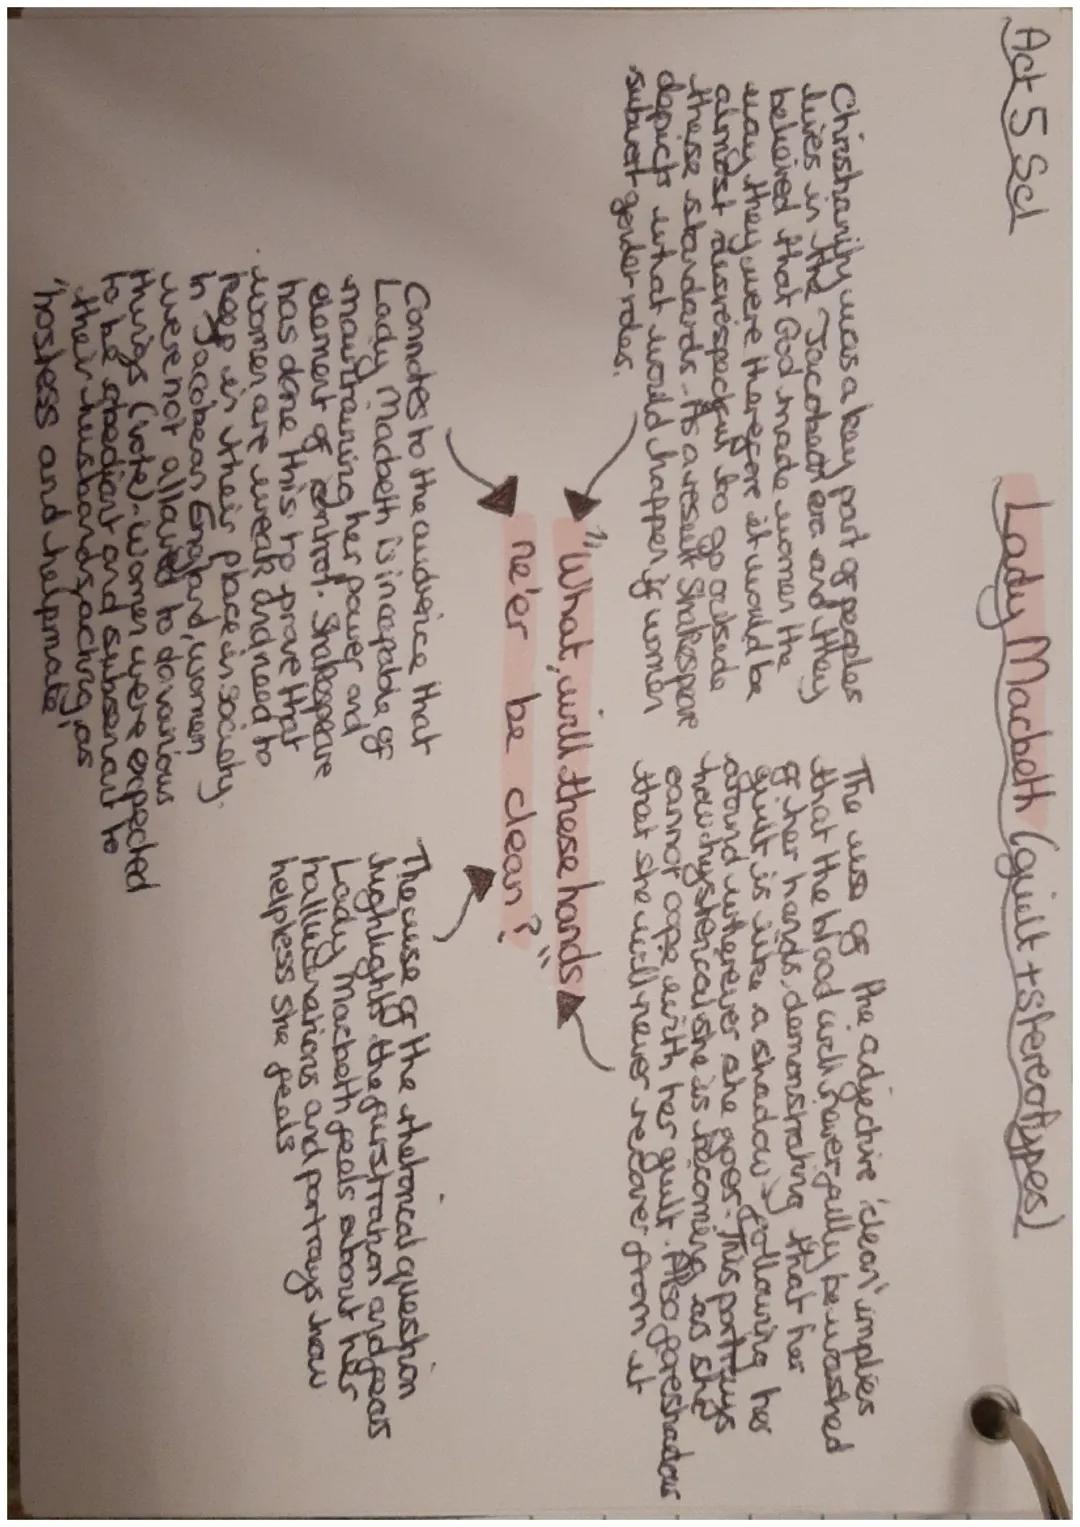 Act 5 Sc1
Lady Macbeth (guilt + stereotypes)
Christianity was a key part of peoples
lives in the Jacobean era and they
believed that God made women the
way they were therefore it would be
almost disrespectful to go outside
these standards. As a result Shakespeare
depicts what would happen if women
subvert gender roles.
The use of the adjective 'clean' implies
that the blood will never fully be washed
of her hands, demonstrating that her
guilt is like a shadow following her
around wherever she goes. This portrays
how hysterical she is becoming as she
cannot cope with her guilt. Also foreshadows
that she will never recover from it
"What, will these hands
ne'er be clean?"
Connotes to the audience that
Lady Macbeth is incapable of
maintaining her power and
element of control. Shakespeare
has done this to prove that
women are weak and need to
keep in their place in society.
In Jacobean England, women
were not allowed to do various
things (vote). Women were expected
to be obedient and subservient to
their husbands, acting as
"hostess and helpmate"
The use of the rhetorical question
highlights the frustration and fears
Lady Macbeth feels about her
hallucinations and portrays how
helpless she feels